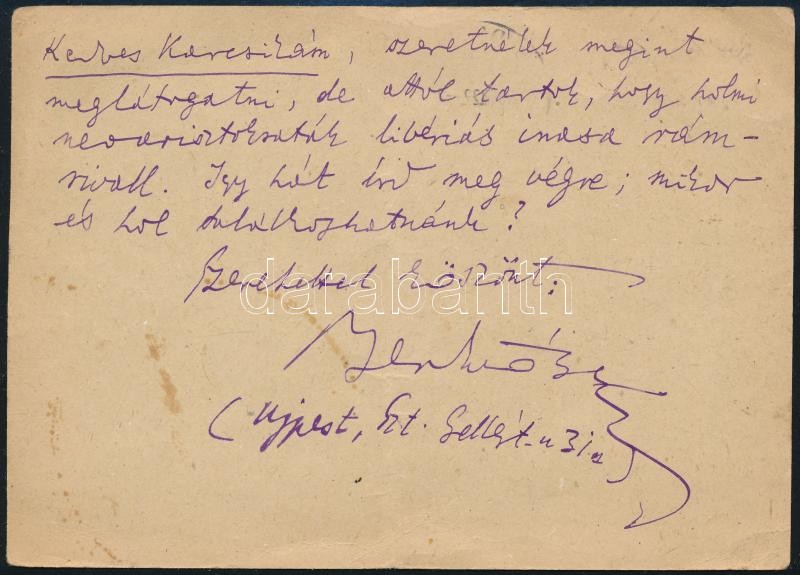 Kedves Karcsikám, szeretnélek megint
meglátogatni, de attól tartok, hogy holmi
neoarisztokraták libériás inasa rám-
rivall. Igy hát írd meg végre; mikor
és hol találkozhatnánk?
Szeretettel köszönt:
darabanth
(Ujpest, Szt. Gellért-u 31.